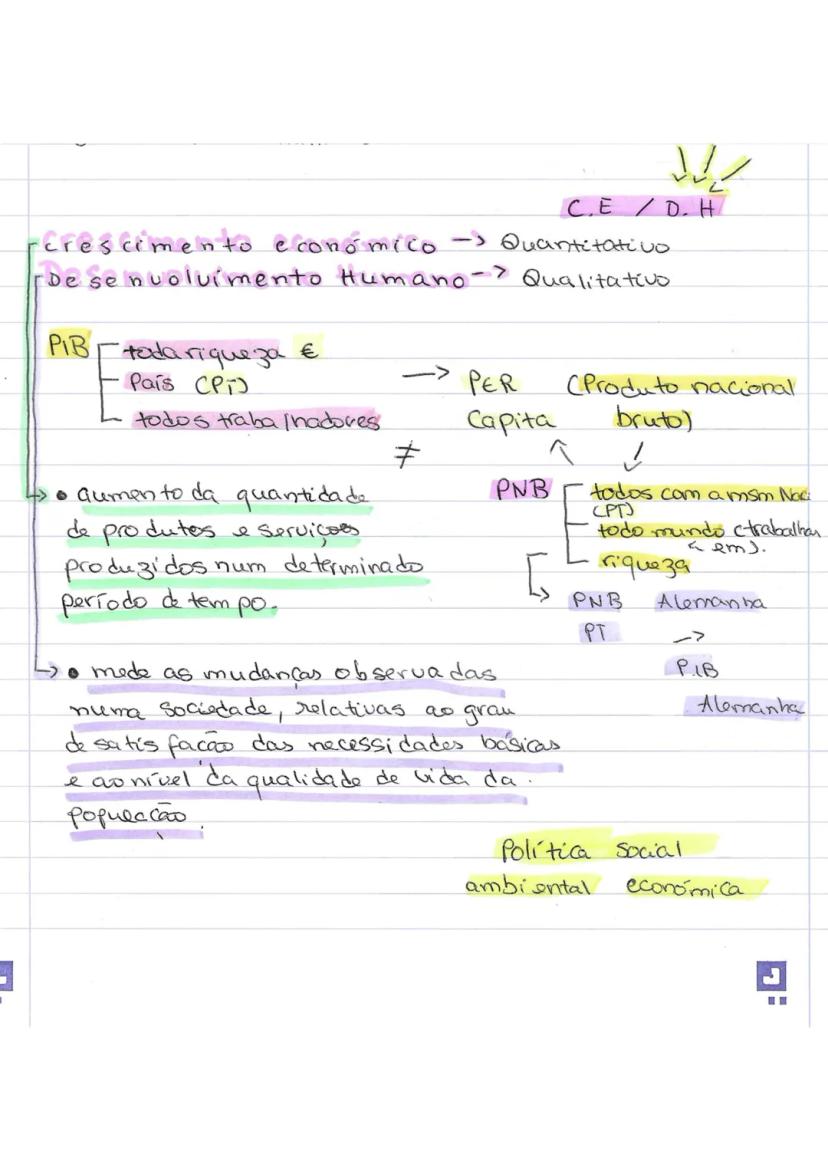 C.E / D.H
Crescimento económico -> Quantitativo
Desenvolvimento Humano -> Qualitativo
PiB
toda riqueza €
País (PT)
todos trabalhadores
-> PER (Produto nacional
Capita bruto)
≠
• aumento da quantidade
de produtos e serviços
produzidos num determinado
período de tempo.
PNB
todos com a msm Naci
(PT)
todo mundo (trabalham
em).
riqueza
PNB Alemanha
PT ->
P.IB
Alemanha
• mede as mudanças observadas
numa sociedade, relativas ao grau
de satisfação das necessidades básicas
e ao nível da qualidade de vida da
população.
Política social
ambiental económica